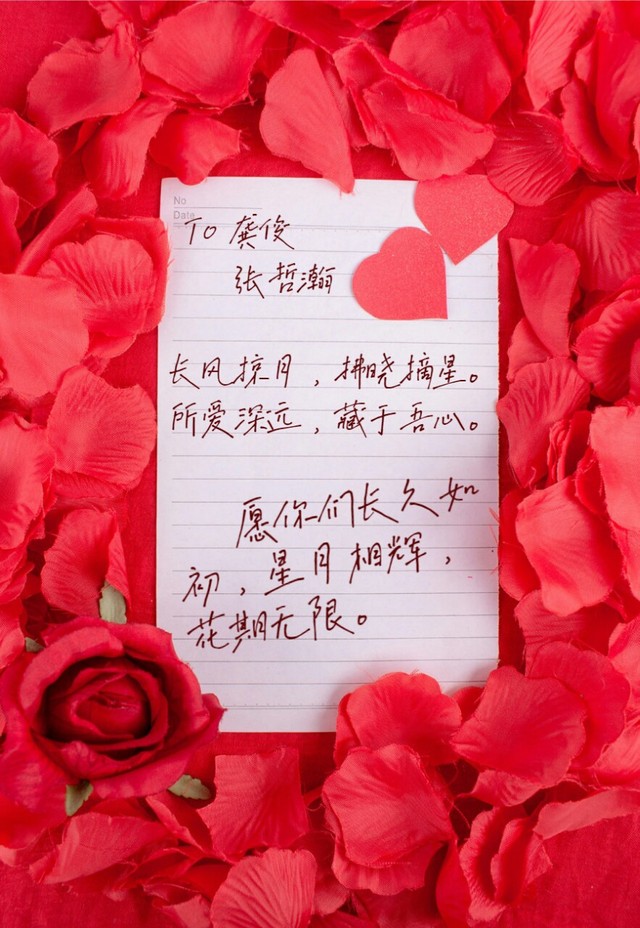 No
Date
To 龚俊
张哲瀚
长风掠月，拂晓摘星。
所爱深远，藏于吾心。
愿你们长久如
初，星月相辉，
花期无限。